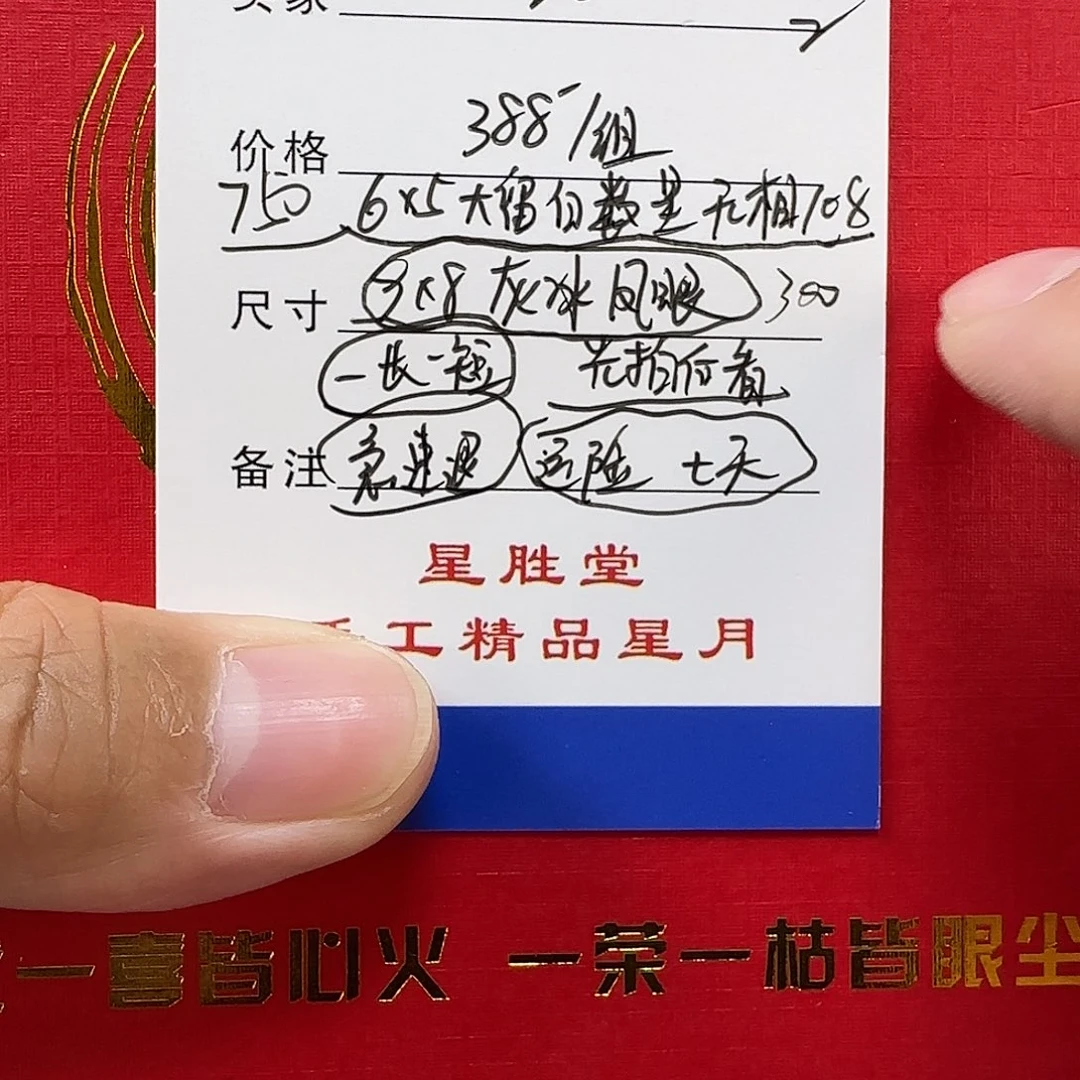 价格 388-/组
750 6×5大留白数星 无相108
尺寸 3×8 灰冰凤眼 300
一长一短 先拍后看
备注 急速退 运险 七天
星胜堂
工精品星月
一喜皆心火 一荣一枯皆眼尘